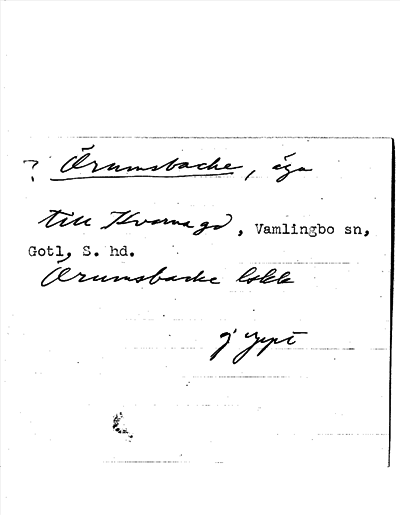 ? Ärumsbacke, äga
till Kvarna gd, Vamlingbo sn,
Gotl, S. hd.
Ärumsbacke lokk